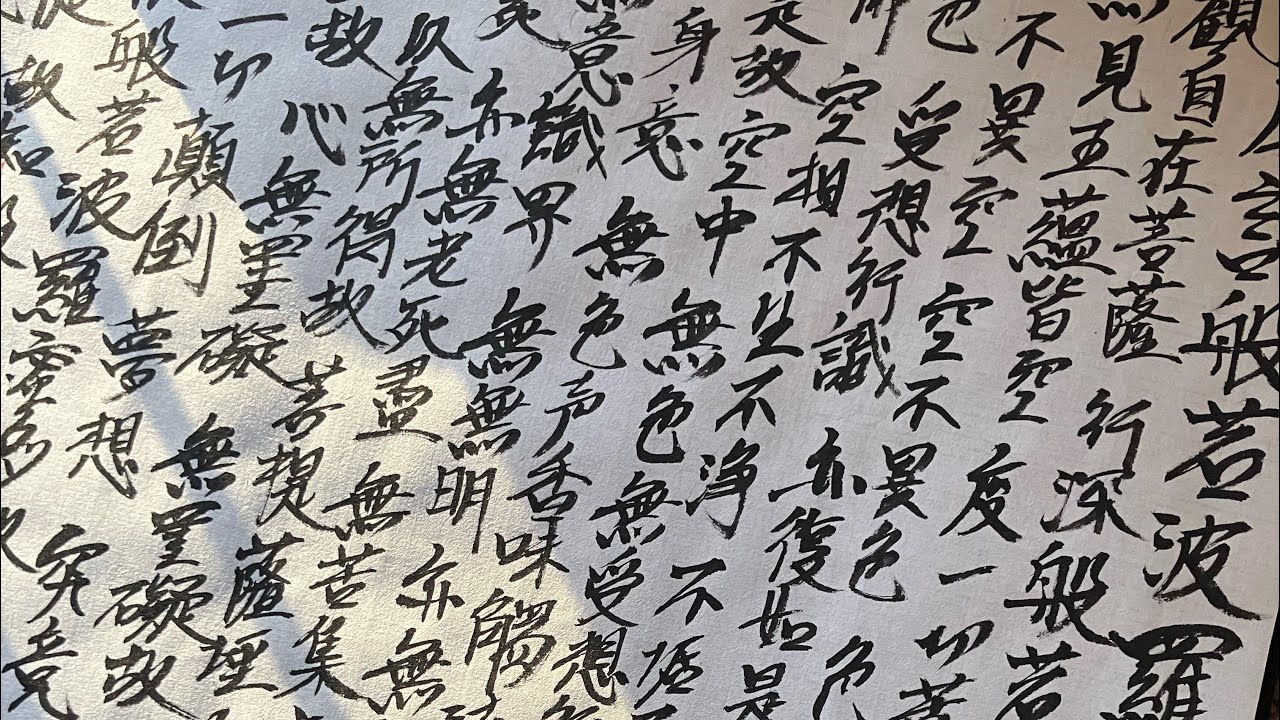 般若波羅
觀自在菩薩 行深般若
見五蘊皆空 度一切苦
不異空空不異色色
色 受想行識 亦復如是
空相不生不淨 不垢
是故空中 無色無受想
身意 無色声香味觸
無意識界 無無明亦無
死 亦無老死盡 無苦集
以無所得故 菩提薩埵
故 心無罣礙 無罣礙故
一切顛倒夢想 究竟
般若波羅密多
故